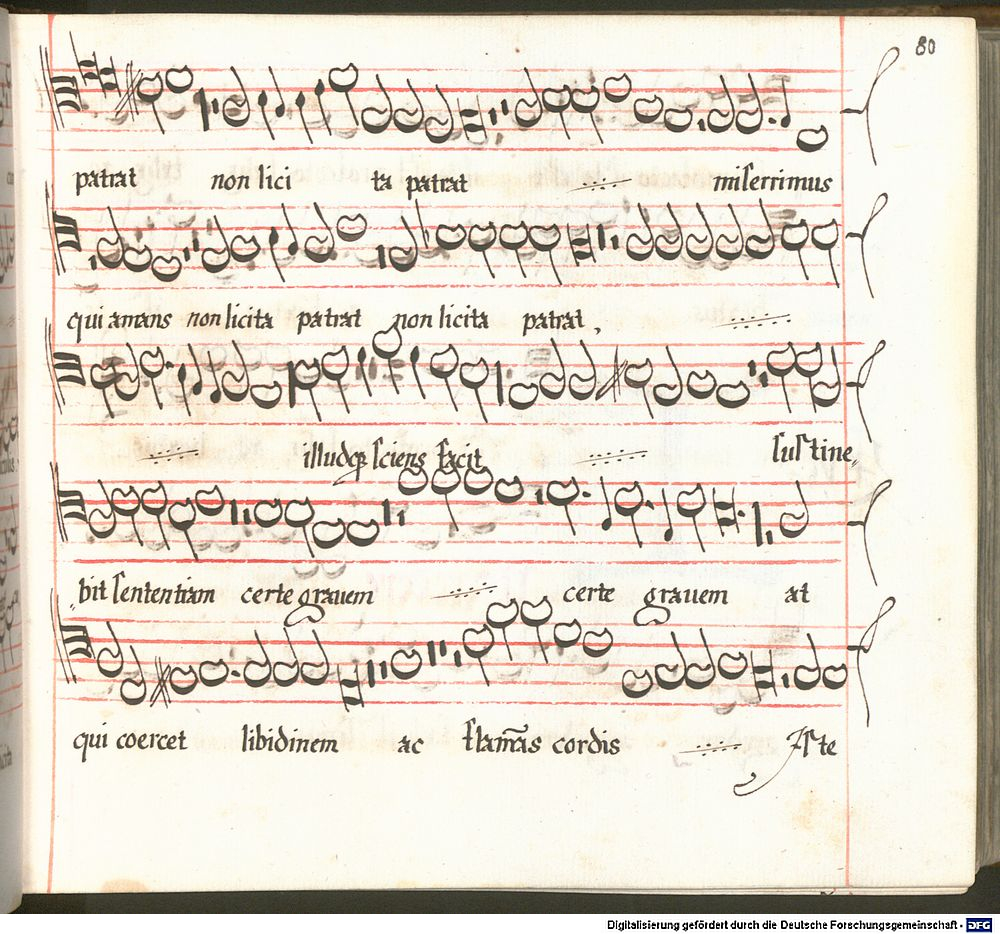 80
patrat non lici ta patrat miserrimus
qui amans non licita patrat non licita patrat,
illudq; sciens facit sustine,
bit sententiam certe grauem certe grauem at
qui coercet libidinem ac flam̃as cordis Iste
Digitalisierung gefördert durch die Deutsche Forschungsgemeinschaft - DFG